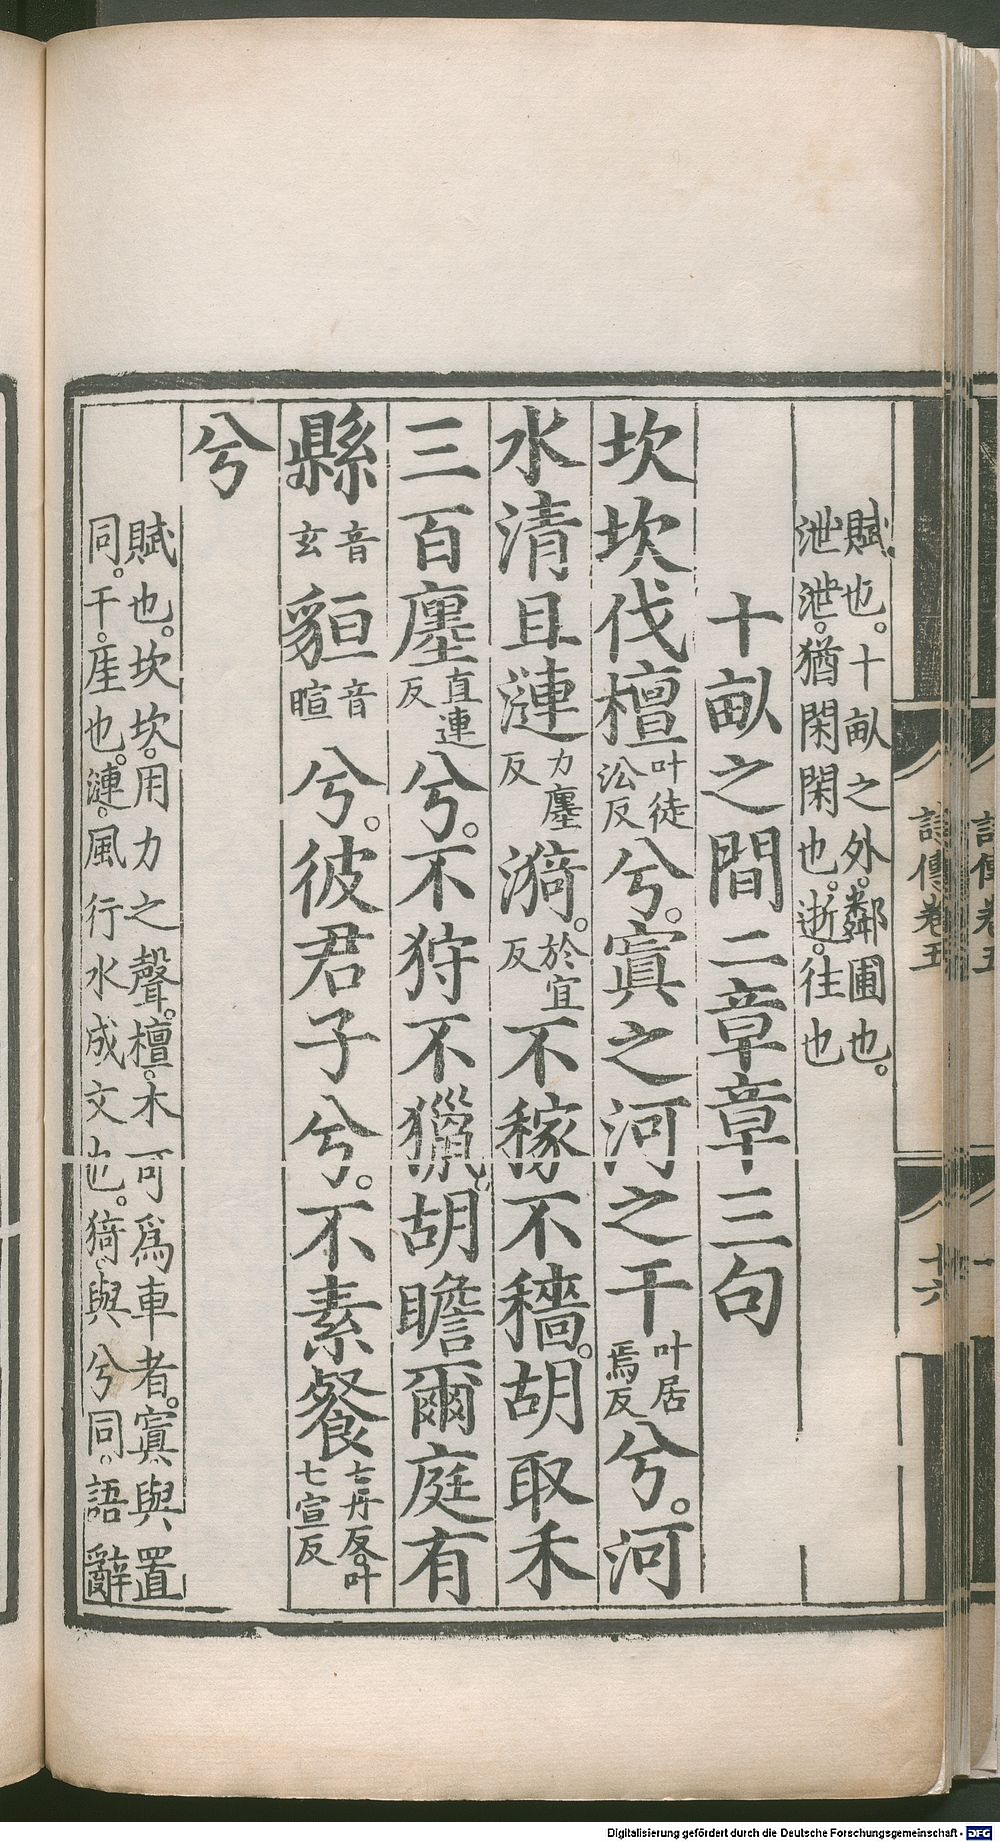 賦也。十畝之外。鄰圃也。
泄泄。猶閑閑也。逝。往也
十畝之間二章章三句
坎坎伐檀叶徒㳂反兮。寘之河之干叶居焉反兮。河
水清且漣力廛反漪。於宜反不稼不穡。胡取禾
三百廛直連反兮。不狩不獵。胡瞻爾庭有
縣音玄貆音暄兮。彼君子兮。不素餐七丹反。叶七宣反
兮
賦也。坎坎。用力之聲。檀。木可爲車者。寘與置
同。干。厓也。漣。風行水成文也。猗與兮同。語辭
詩傳卷五
十六
Digitalisierung gefördert durch die Deutsche Forschungsgemeinschaft - DFG